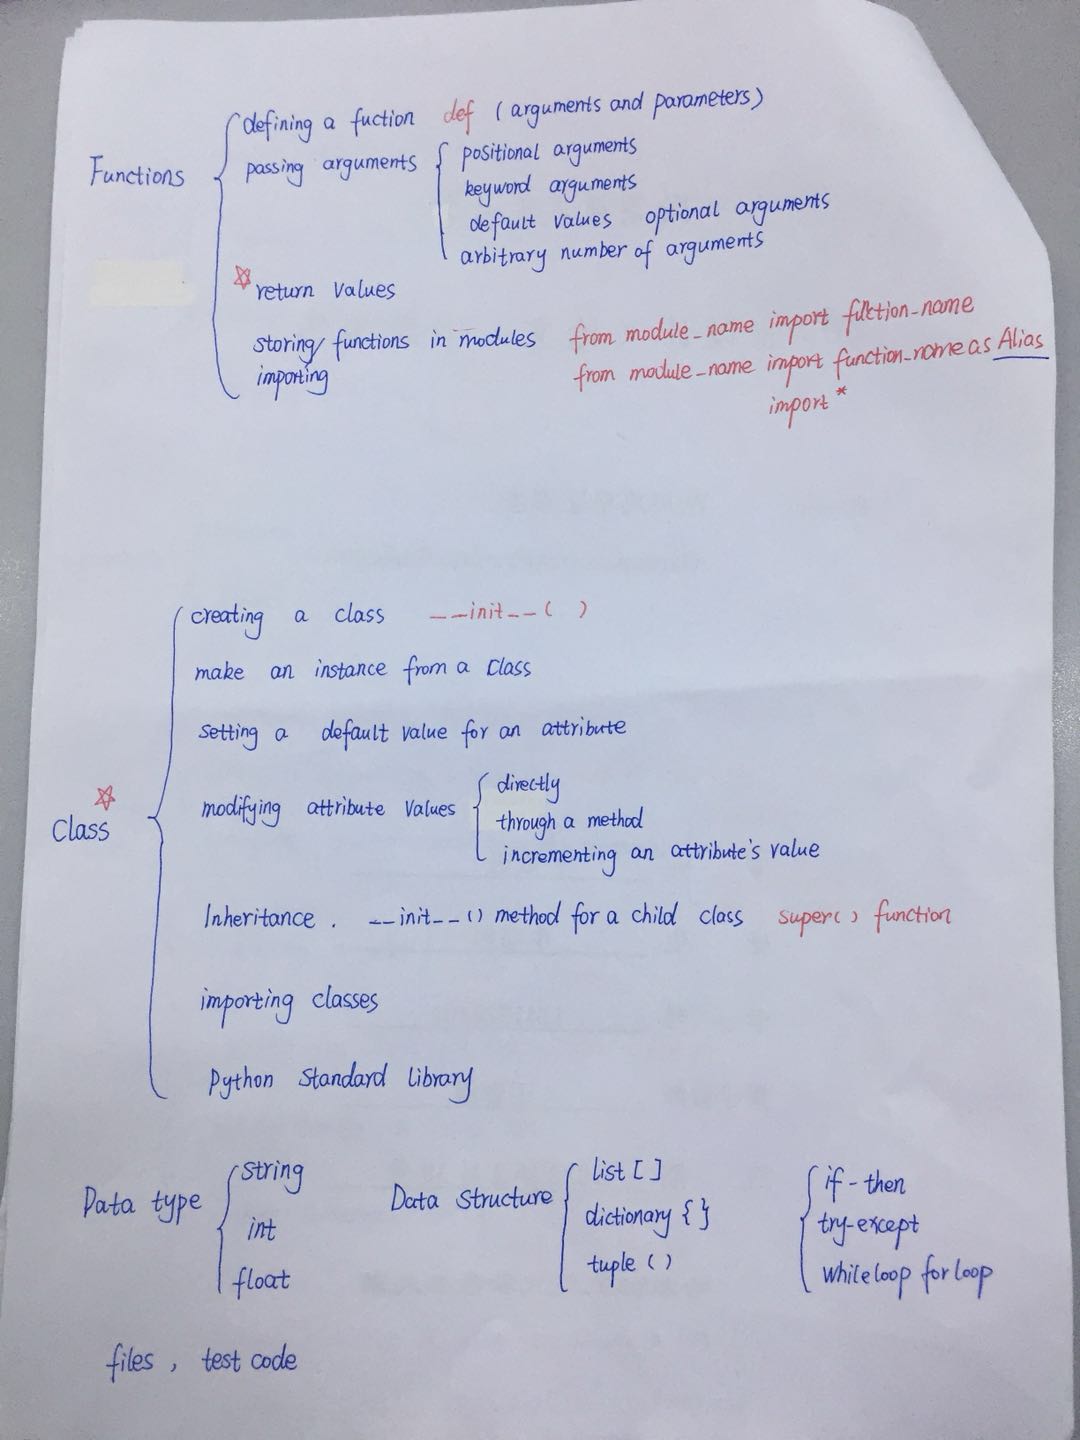 defining a fuction def (arguments and parameters)
Functions
passing arguments
positional arguments
keyword arguments
default values optional arguments
arbitrary number of arguments
return values
storing/functions in modules from module_name import fuction-name
importing from module_name import function_name as Alias
import *
creating a class __init__( )
make an instance from a class
setting a default value for an attribute
Class
modifying attribute values
directly
through a method
incrementing an attribute's value
Inheritance. __init__() method for a child class super() function
importing classes
Python Standard Library
Data type
string
int
float
Data Structure
list []
dictionary {}
tuple ()
if-then
try-except
while loop for loop
files, test code